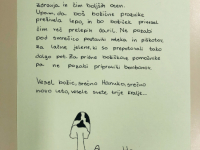 zdravja in čim boljših ocen.
Upam, da boš božične praznike
preživela lepo, in bo božiček prinesel
čim več prelepih daril. Ne pozabi
pod smrečico postaviti mleka in piškotov.
Za lačne jelene, ki so prepotovali tako
dolgo pot. Za pridne božičkove pomočnike
pa ne pozabi pripraviti bombonov.
Vesel božič, srečno Hanuko, srečno
novo leto, vesele svete trije kralje...